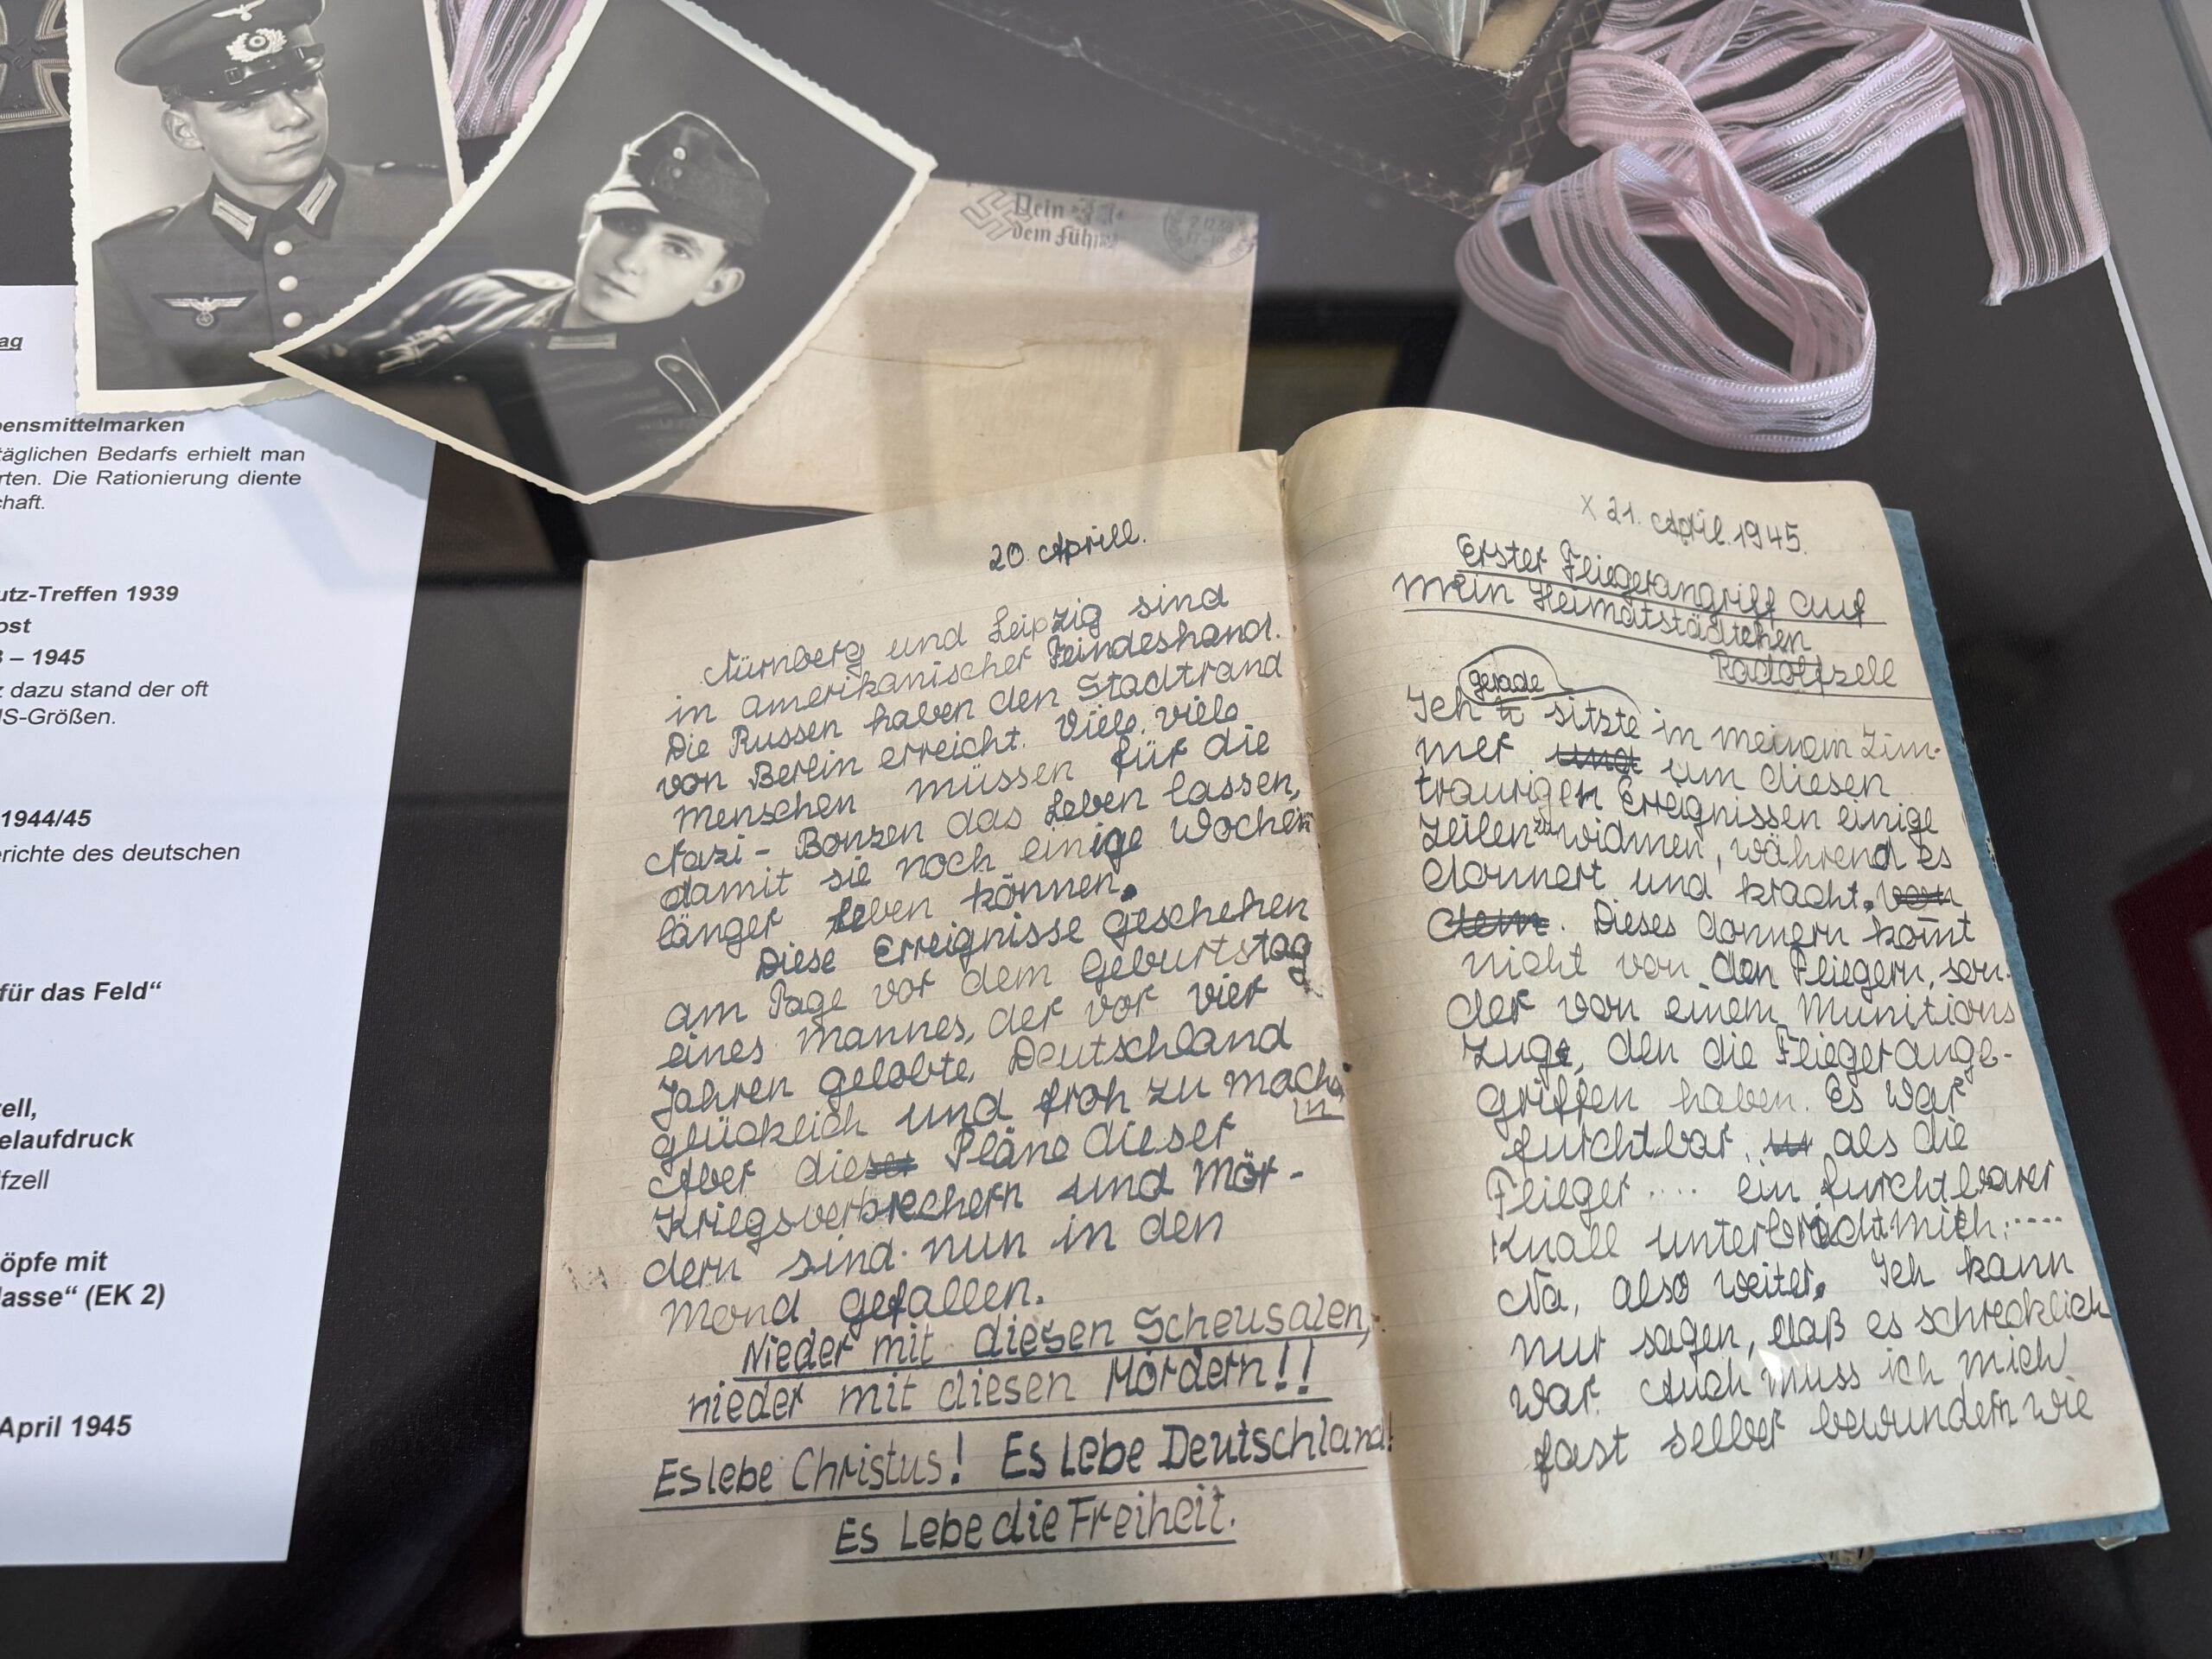 ag
bensmittelmarken
täglichen Bedarfs erhielt man
rten. Die Rationierung diente
chaft.
utz-Treffen 1939
ost
– 1945
z dazu stand der oft
NS-Größen.
1944/45
erichte des deutschen
für das Feld“
zell,
elaufdruck
fzell
öpfe mit
lasse“ (EK 2)
April 1945
Dein
dem Führ
20. Aprill.
Nürnberg und Leipzig sind
in amerikanischer Feindeshand.
Die Russen haben den Stadtrand
von Berlin erreicht. Viele, viele
Menschen müssen für die
Nazi-Bonzen das Leben lassen,
damit sie noch einige Wochen
länger leben können.
Diese Erreignisse geschehen
am Tage vor dem Geburtstag
eines Mannes, der vor vier
Jahren gelobte, Deutschland
glücklich und froh zu mach
en
Aber dieser Pläne dieser
Kriegsverbrechern und Mör-
dern sind nun in den
Mond gefallen.
Nieder mit diesen Scheusalen,
nieder mit diesen Mördern!!
Es lebe Christus! Es Lebe Deutschland!
Es Lebe die Freiheit.
X 21. April 1945.
Erster Fliegerangriff auf
mein Heimatstädtchen
Radolfzell
gerade
Ich sitzte in meinem Zim-
mer und um diesen
traurigen Erreignissen einige
Zeilen zu widmen, während es
donnert und kracht. von
dem. Dieses donnern komt
nicht von den Fliegern, son-
der von einem Munitions
zuge, den die Flieger ange-
griffen haben. Es war
furchtbar, als die
Flieger .... ein furchtbarer
Knall unterbricht mich.....
Na, also weiter. Ich kann
nur sagen, daß es schrecklich
war. Auch muss ich mich
fast selber bewundern wie